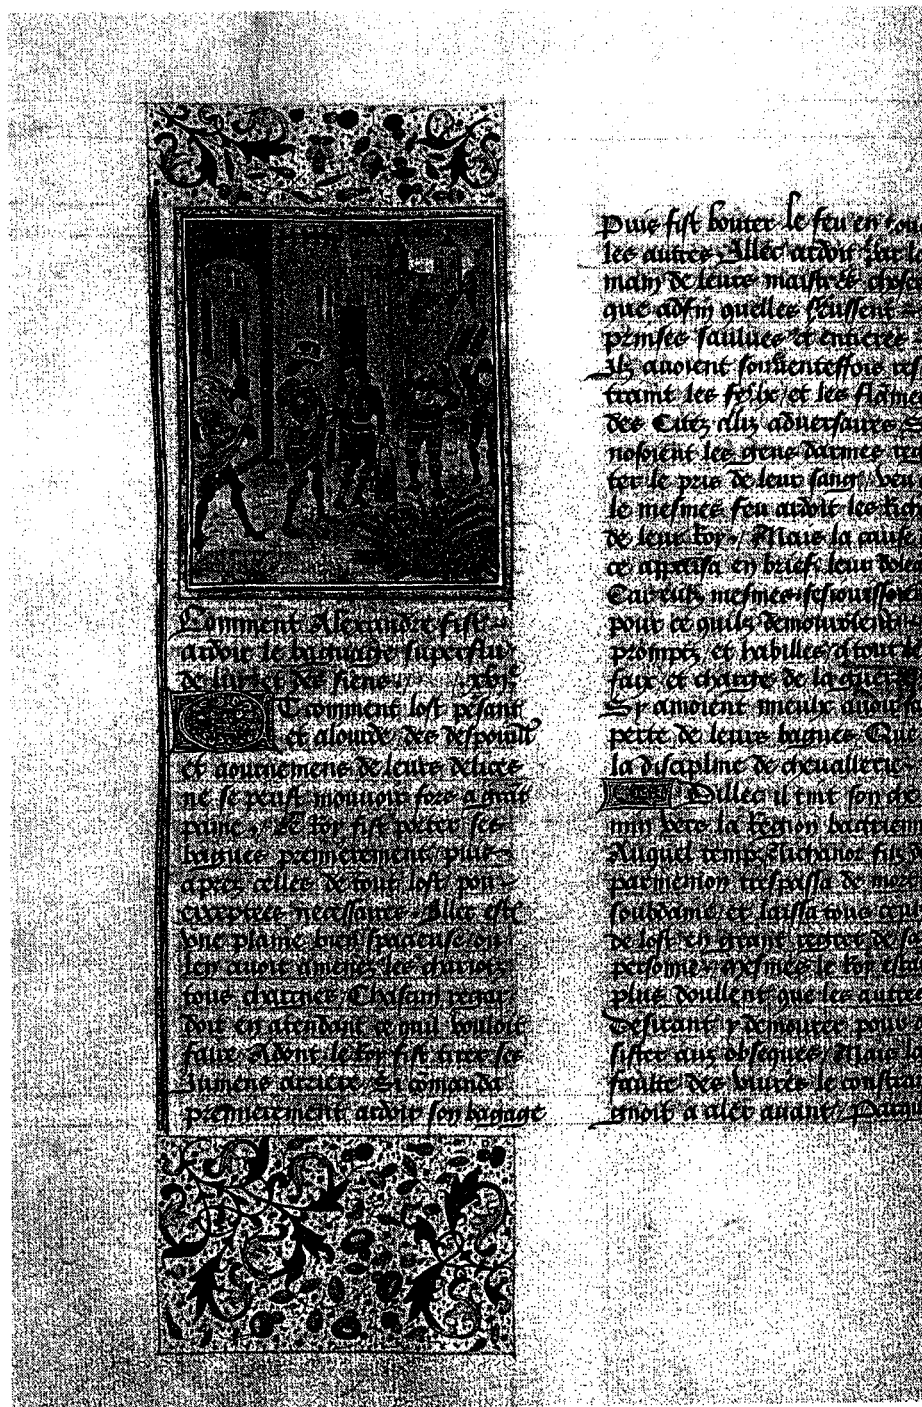 Comment Alexandre fist
ardoir le baguaige superflu
de luy et des siens xvi.e
Et comment lost pesant
et alourde des despouilles
et aournemens de leurs delices
ne se peust mouvoir fors a grant
paine / Le Roy fist porter ses
bagues premierement puis
apres celles de tout lost
exceptees necessaires Illec est
une plaine bien spacieuse ou
len avoit amenez les chariotz
tous charges Chascun regar
doit en atendant ce quil vouloit
faire Adont le roy fist tirer les
Jumens arriere Si comanda
premierement ardoir son bagage
Puis fist bouter le feu en
les autres Illec ardoit par la
main de leurs maistres
que adfin quelles feussent
prinses saulves et entieres
Ilz avoient souventeffois
traint les feux et les flames
des Citez aux adversaires
nosoient les gens darmes
ter le pris de leur sang veu
le mesmes feu ardoit les
de leur Roy / Mais la cause
ce apaisa en brief leur
Car eulx mesmes sesjouissoient
pour ce quilz demouroient
promptz et habilles a tout
faix et charge de la guerre
Sy amoient mieulx avoir
perte de leurs bagues Que
la discipline de chevallerie
Dillec il tint son che
min vers la region bactrienne
Auquel temps Nichanor filz de
parmenion trespassa de mort
soubdaine et laissa tous ceulx
de lost en grant regret de sa
personne mesmes le roy estoit
plus doullent que les autres
Desirant y demourer pour
sister aux obseques Mais la
faulte des vivres le constrai
gnoit a aler avant